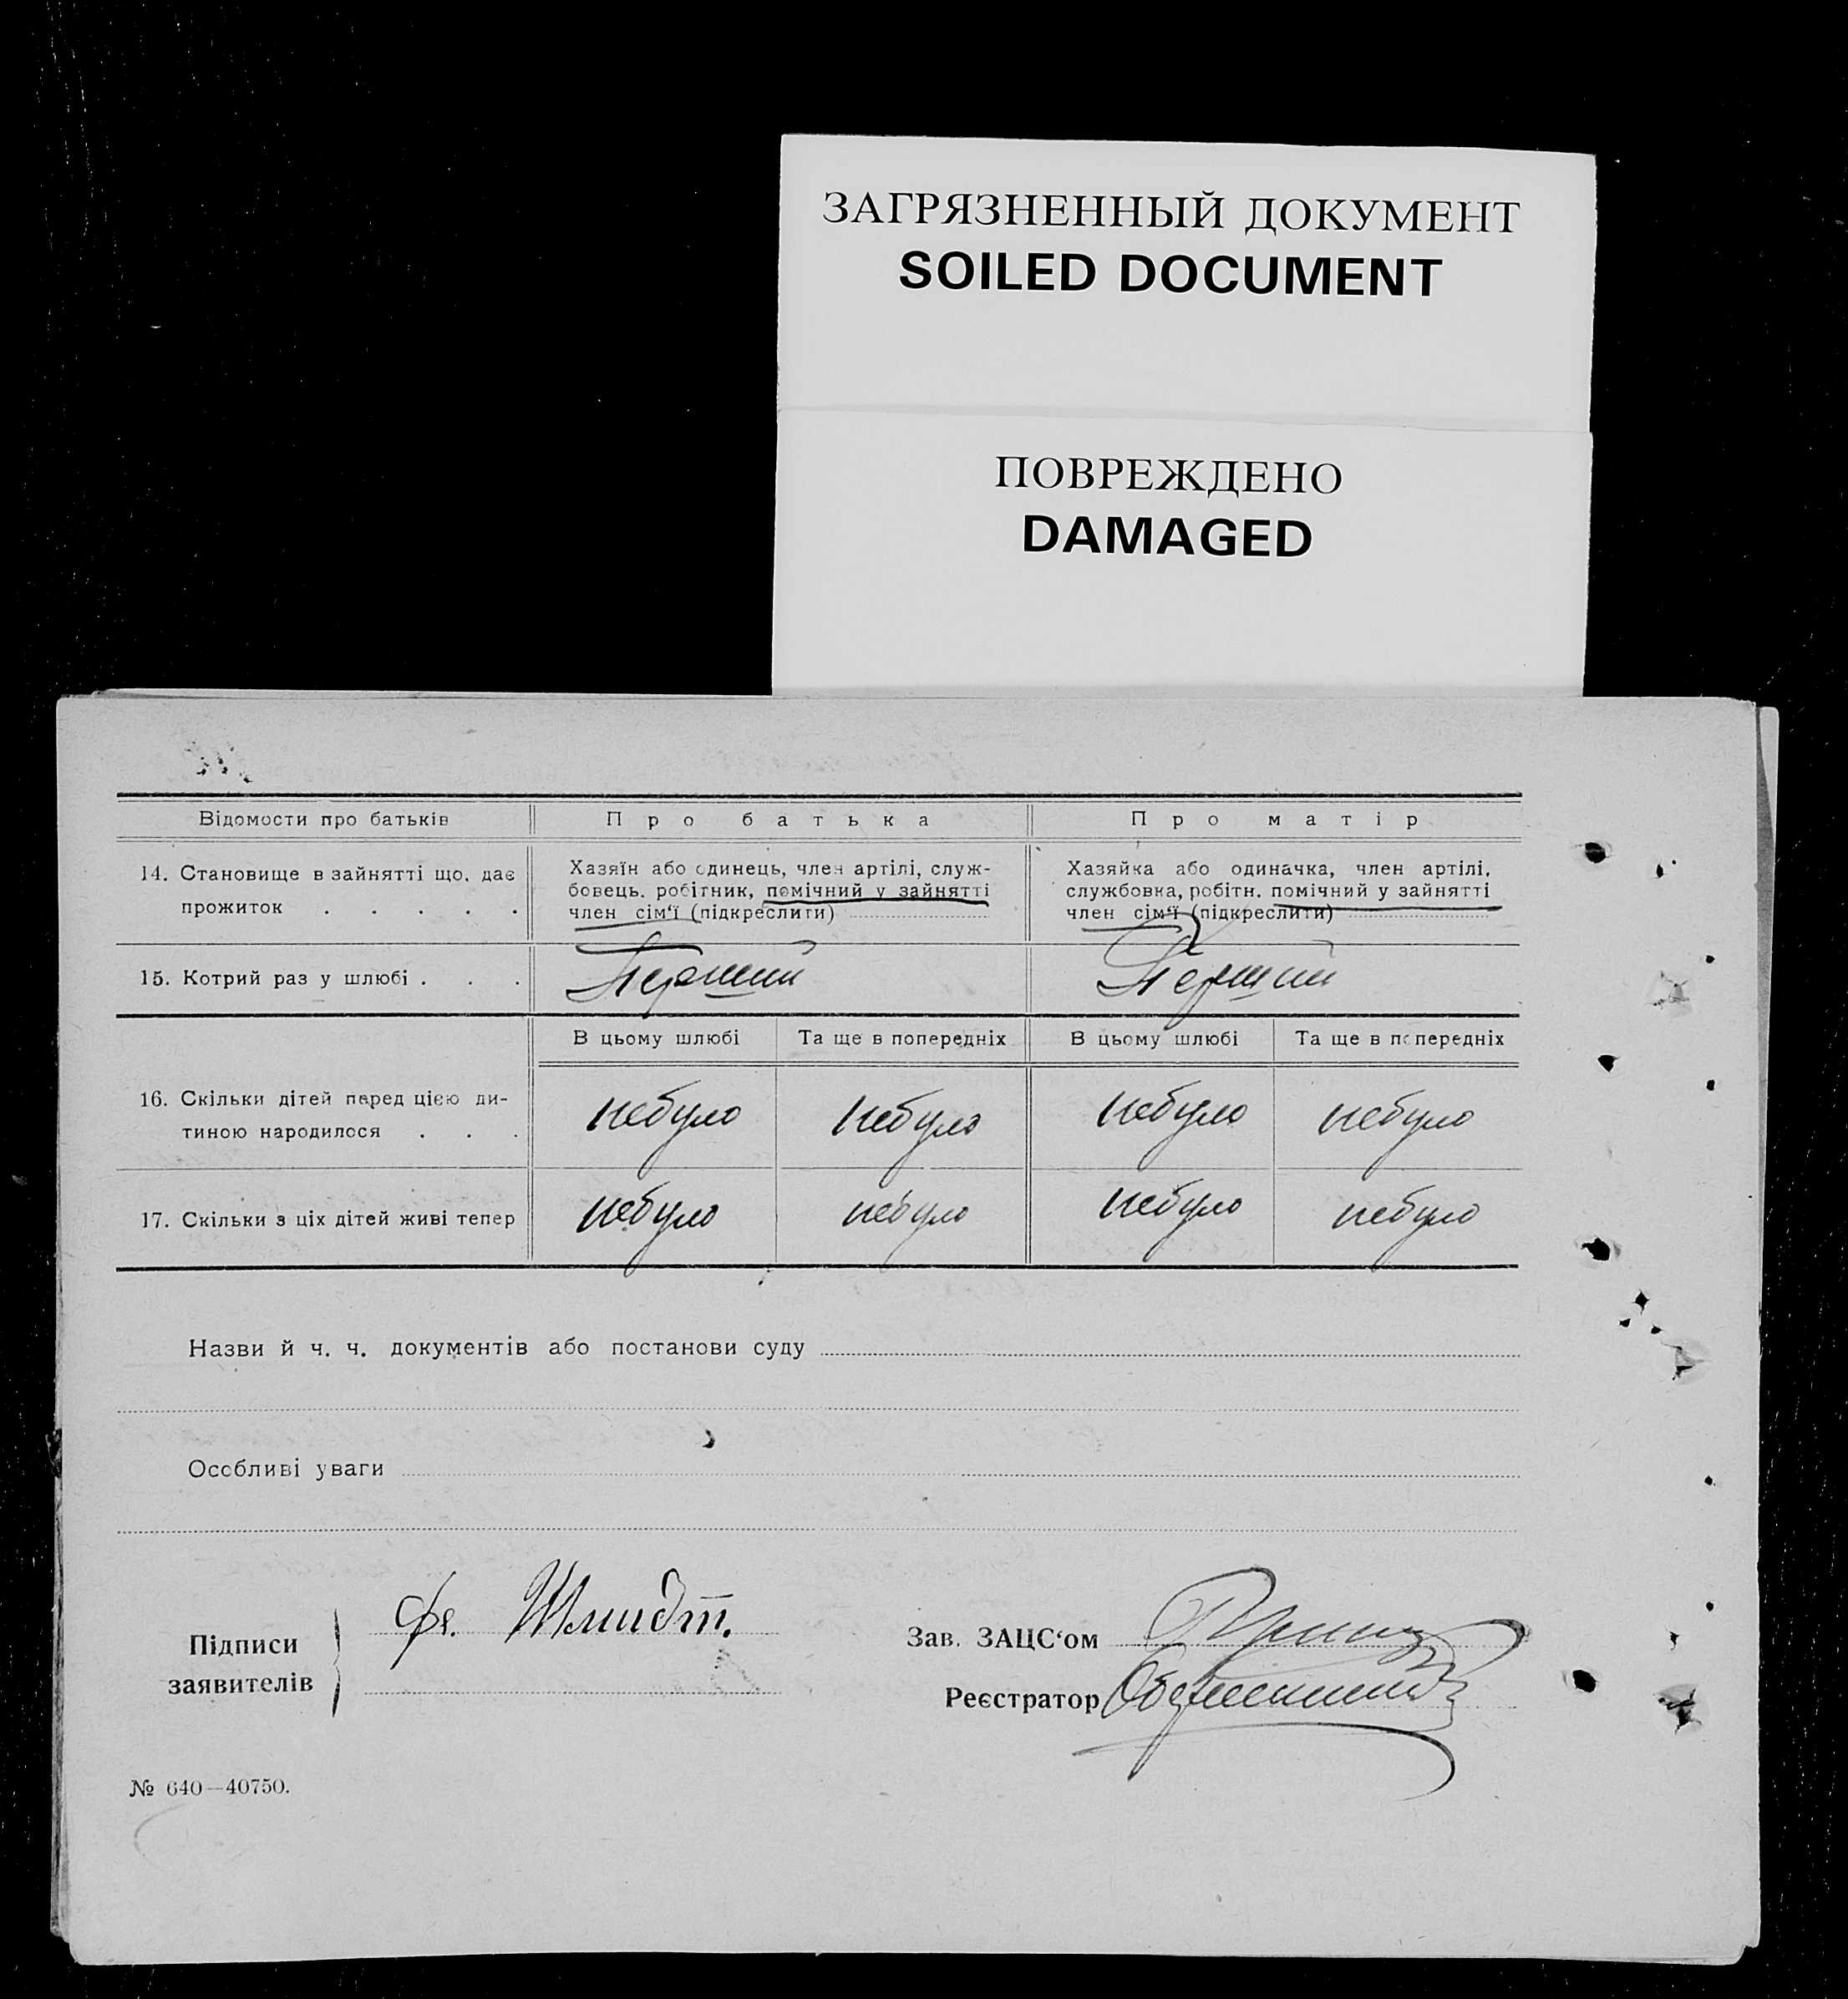 ЗАГРЯЗНЕННЫЙ ДОКУМЕНТ
SOILED DOCUMENT
ПОВРЕЖДЕНО
DAMAGED
Відомости про батьків Про батька Про матір
14. Становище в зайнятті що, дає прожиток . . . . .
Хазяїн або одинець, член артілі, служ-
бовець, робітник, помічний у зайнятті
член сім‘ї (підкреслити)
Хазяйка або одиначка, член артілі,
службовка, робітн. помічний у зайнятті
член сім‘ї (підкреслити)
15. Котрий раз у шлюбі . . . Перший Перший
В цьому шлюбі Та ще в попередніх В цьому шлюбі Та ще в попередніх
16. Скільки дітей перед цією ди-
тиною народилося . . . небуло небуло небуло небуло
17. Скільки з ціх дітей живі тепер небуло небуло небуло небуло
Назви й ч. ч. документів або постанови суду
Особливі уваги
Підписи
заявителів
Фр. Шмидт.
Зав. ЗАЦС‘ом
Реєстратор
№ 640—40750.